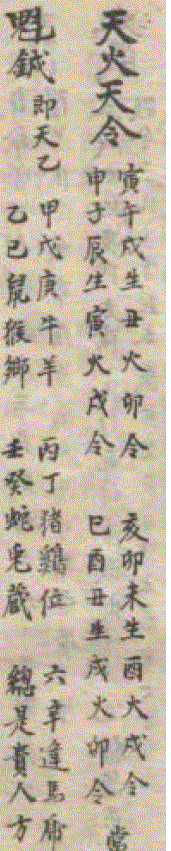 天火天令
寅午戌生丑火卯令 亥卯未生酉火戌令
申子辰生寅火戌令 巳酉丑生戌火卯令 當
魁鉞 即天乙
甲戊庚牛羊 丙丁猪鷄位 六辛逢馬虎
乙己鼠猴鄉 壬癸蛇兎藏 總是貴人方